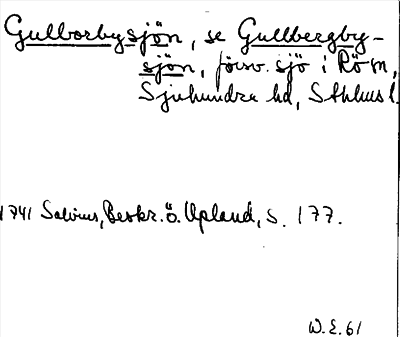 Gullborbysjön, se Gullbergby-
sjön, försv. sjö i Rö sn,
Sjuhundra hd, Sthlms l.
1741 Salvius, Beskr. ö. Upland, s. 177.
W.E. 61